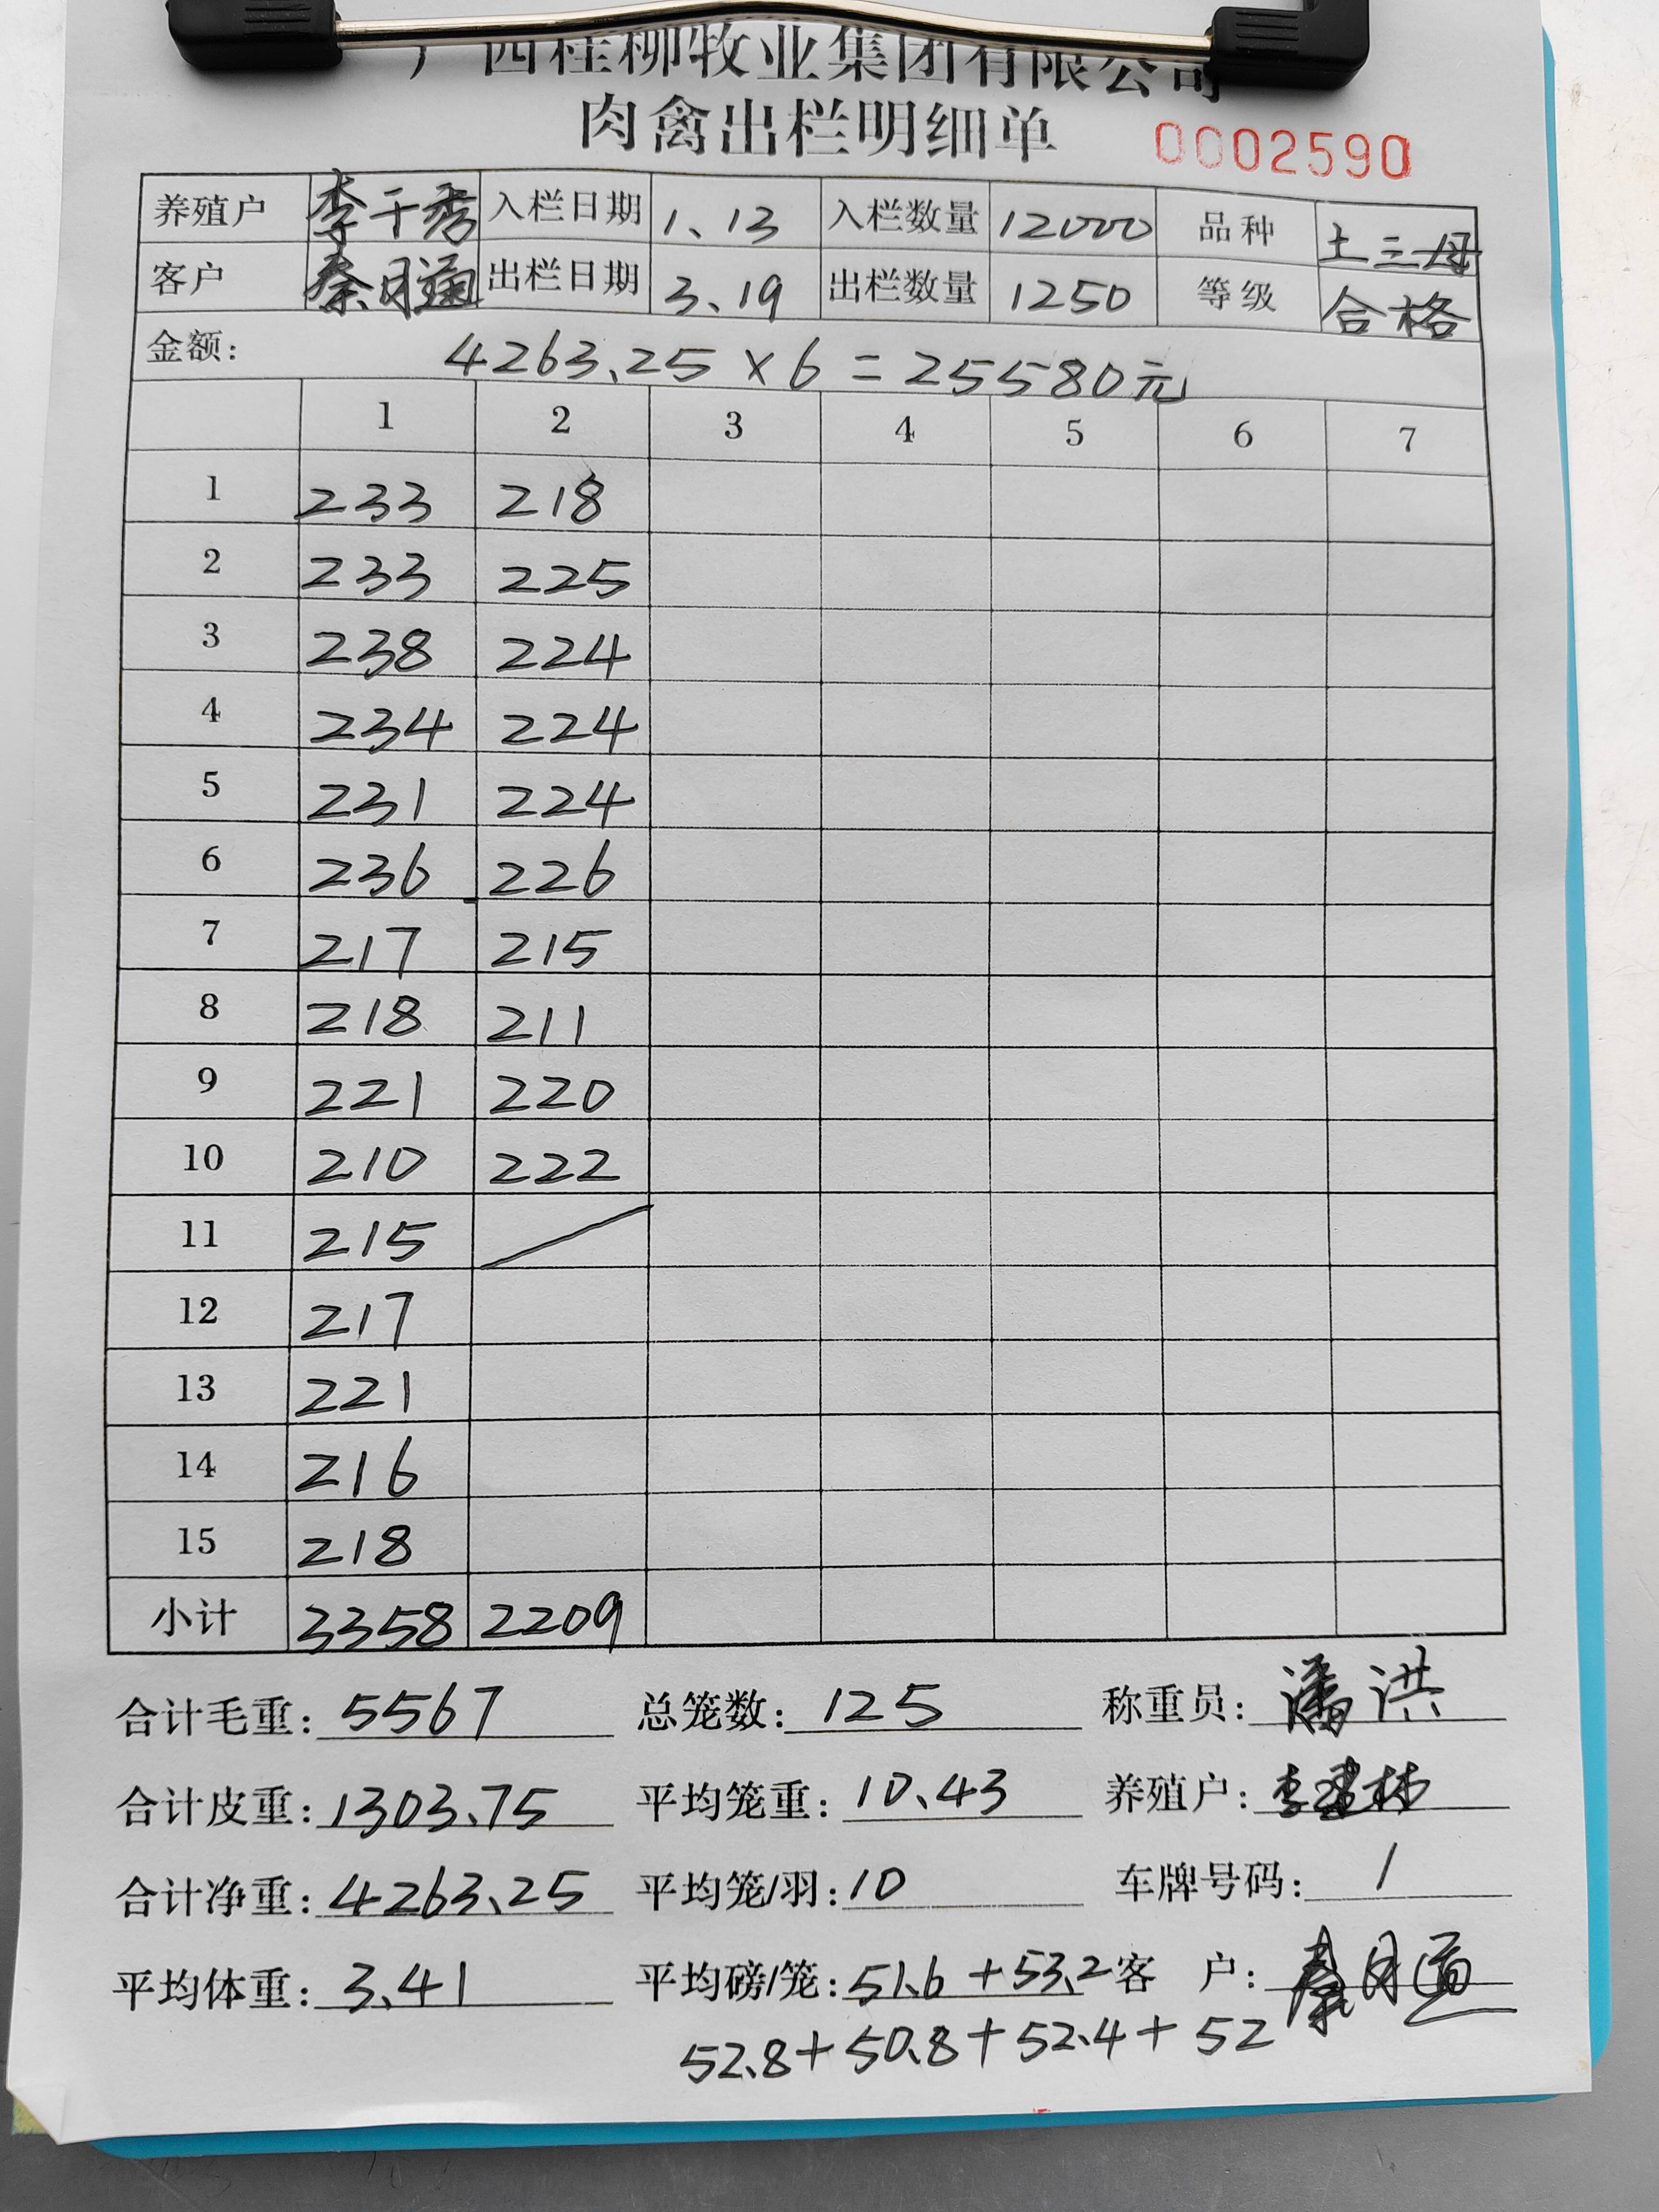 广西桂柳牧业集团有限公司
肉禽出栏明细单 0002590
养殖户 李干秀 入栏日期 1、13 入栏数量 12000 品种 土三母
客户 秦月通 出栏日期 3、19 出栏数量 1250 等级 合格
金额: 4263、25×6=25580元
1 2 3 4 5 6 7
1 233 218
2 233 225
3 238 224
4 234 224
5 231 224
6 236 226
7 217 215
8 218 211
9 221 220
10 210 222
11 215
12 217
13 221
14 216
15 218
小计 3358 2209
合计毛重: 5567 总笼数: 125 称重员: 潘洪
合计皮重: 1303、75 平均笼重: 10、43 养殖户: 李
合计净重: 4263、25 平均笼/羽: 10 车牌号码: /
平均体重: 3、41 平均磅/笼: 51、6+53、2 客 户: 秦月通
52、8+50、8+52、4+52